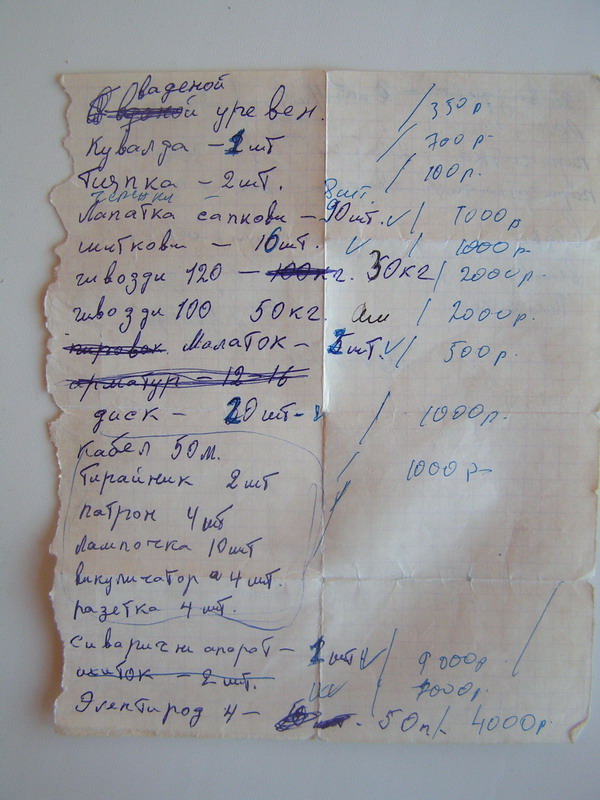 ваденой
уревен. / 350р
Кувалда – 2шт / 700р
Тияпка – 2шт. / 100р.
черенки – 8шт.
Лапатка сапкови – 90шт. V / 1000р
шткови – 16шт. V / 1000р
гивозди 120 – 30кг / 2000р
гивозди 100 50кг. / 2000р.
Малаток – шт. V / 500р.
арматур – 12-16
диск – 20шт – / 1000р.
кабел 50м.
тирайник 2шт / 1000р
патрон 4шт
лампочка 10шт
викуличатор 4шт.
разетка 4шт.
сиваричги апорот – шт V / 9000р
– 2шт. / 1000р.
Элептирод 4 – 50п / 4000р.